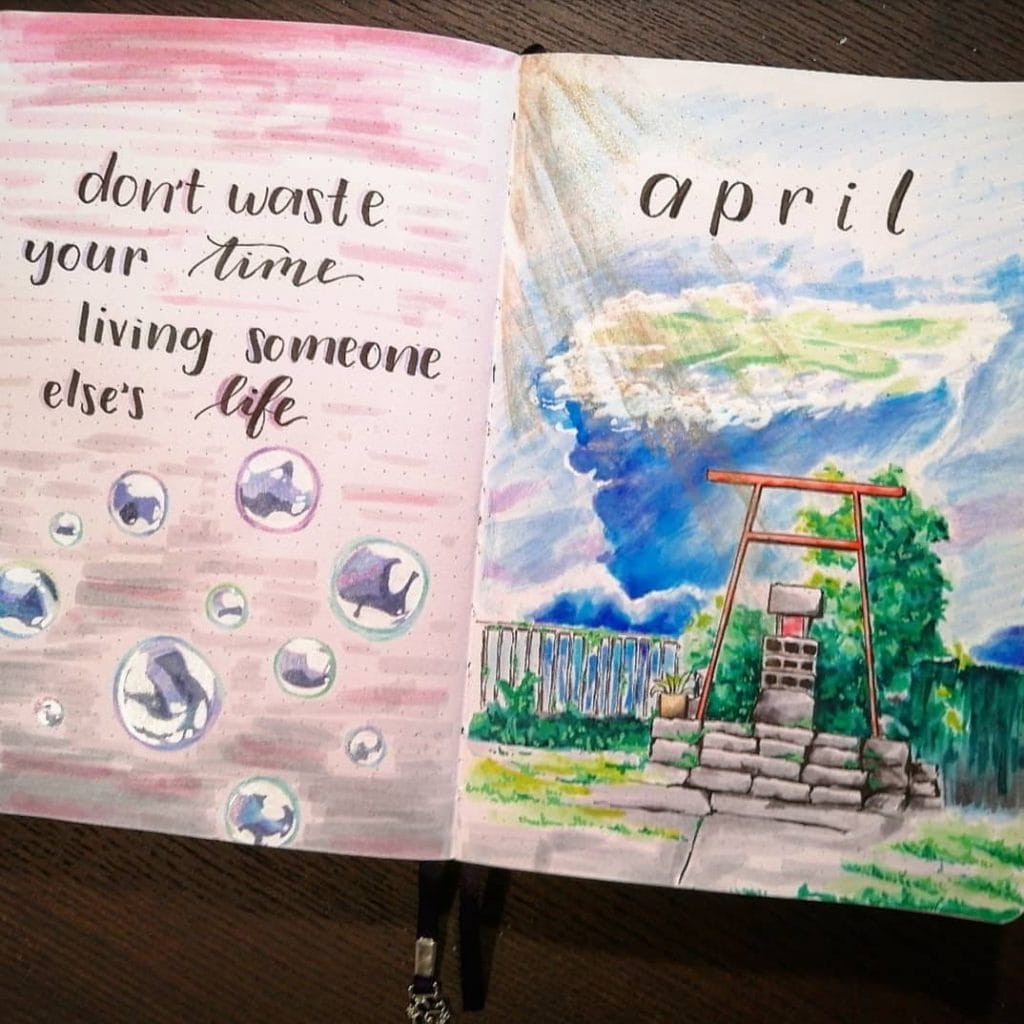 don't waste
your time
living someone
else's life
april